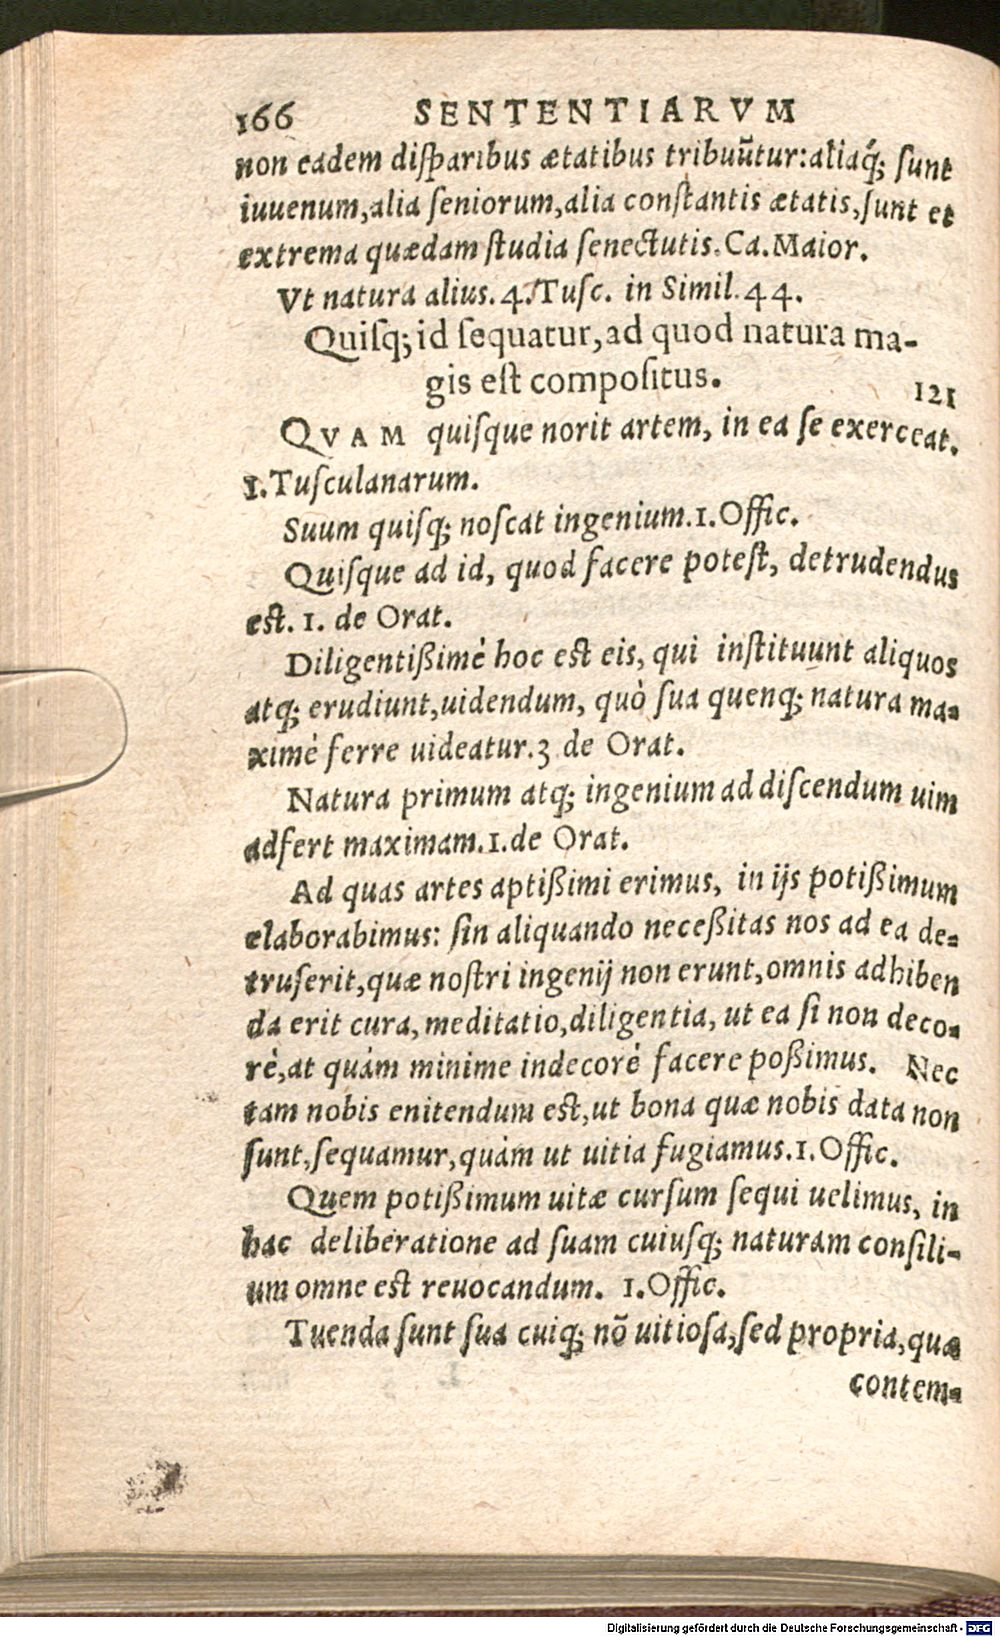 166 SENTENTIARVM
non eadem diſparibus ætatibus tribuūtur:aliaq́; ſunt
iuuenum,alia ſeniorum,alia conſtantis ætatis,ſunt et
extrema quædam ſtudia ſenectutis.Ca.Maior.
Vt natura alius.4.Tuſc. in Simil.44.
Quiſq;id ſequatur,ad quod natura ma-
gis eſt compoſitus.
121
QVAM quiſque norit artem, in ea ſe exerceat.
1.Tuſculanarum.
Suum quiſq; noſcat ingenium.1.Offic.
Quiſque ad id, quod facere poteſt, detrudendus
eſt. 1. de Orat.
Diligentißimè hoc eſt eis, qui inſtituunt aliquos
atq; erudiunt,uidendum, quò ſua quenq; natura ma-
ximè ferre uideatur.3 de Orat.
Natura primum atq; ingenium ad diſcendum uim
adfert maximam.1.de Orat.
Ad quas artes aptißimi erimus, in ijs potißimum
elaborabimus: ſin aliquando neceßitas nos ad ea de-
truſerit,quæ noſtri ingenij non erunt,omnis adhiben
da erit cura, meditatio,diligentia, ut ea ſi non deco-
rè,at quàm minime indecorè facere poßimus. Nec
tam nobis enitendum eſt,ut bona quæ nobis data non
ſunt,ſequamur,quàm ut uitia fugiamus.1.Offic.
Quem potißimum uitæ curſum ſequi uelimus, in
hac deliberatione ad ſuam cuiuſq; naturam conſili-
um omne eſt reuocandum. 1.Offic.
Tuenda ſunt ſua cuiq; nō uitioſa,ſed propria,quæ
contem-
Digitalisierung gefördert durch die Deutsche Forschungsgemeinschaft - DFG